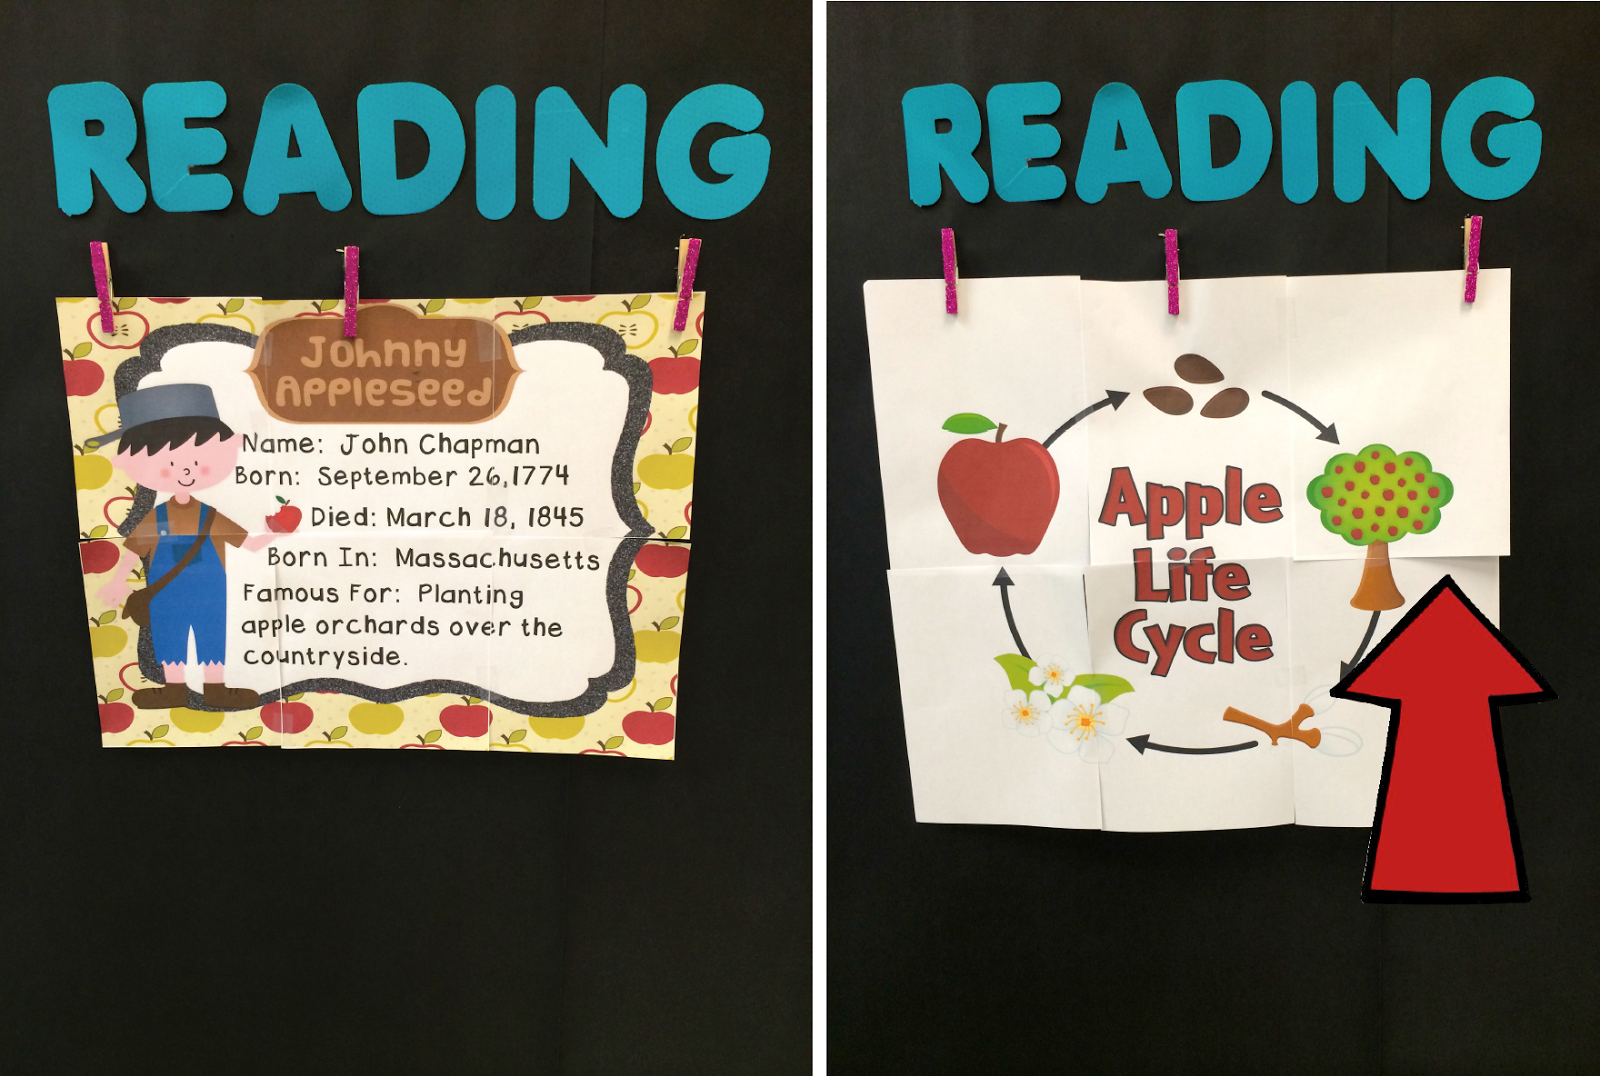 READING
Johnny
Appleseed
Name: John Chapman
Born: September 26, 1774
Died: March 18, 1845
Born In: Massachusetts
Famous For: Planting
apple orchards over the
countryside.
READING
Apple
Life
Cycle